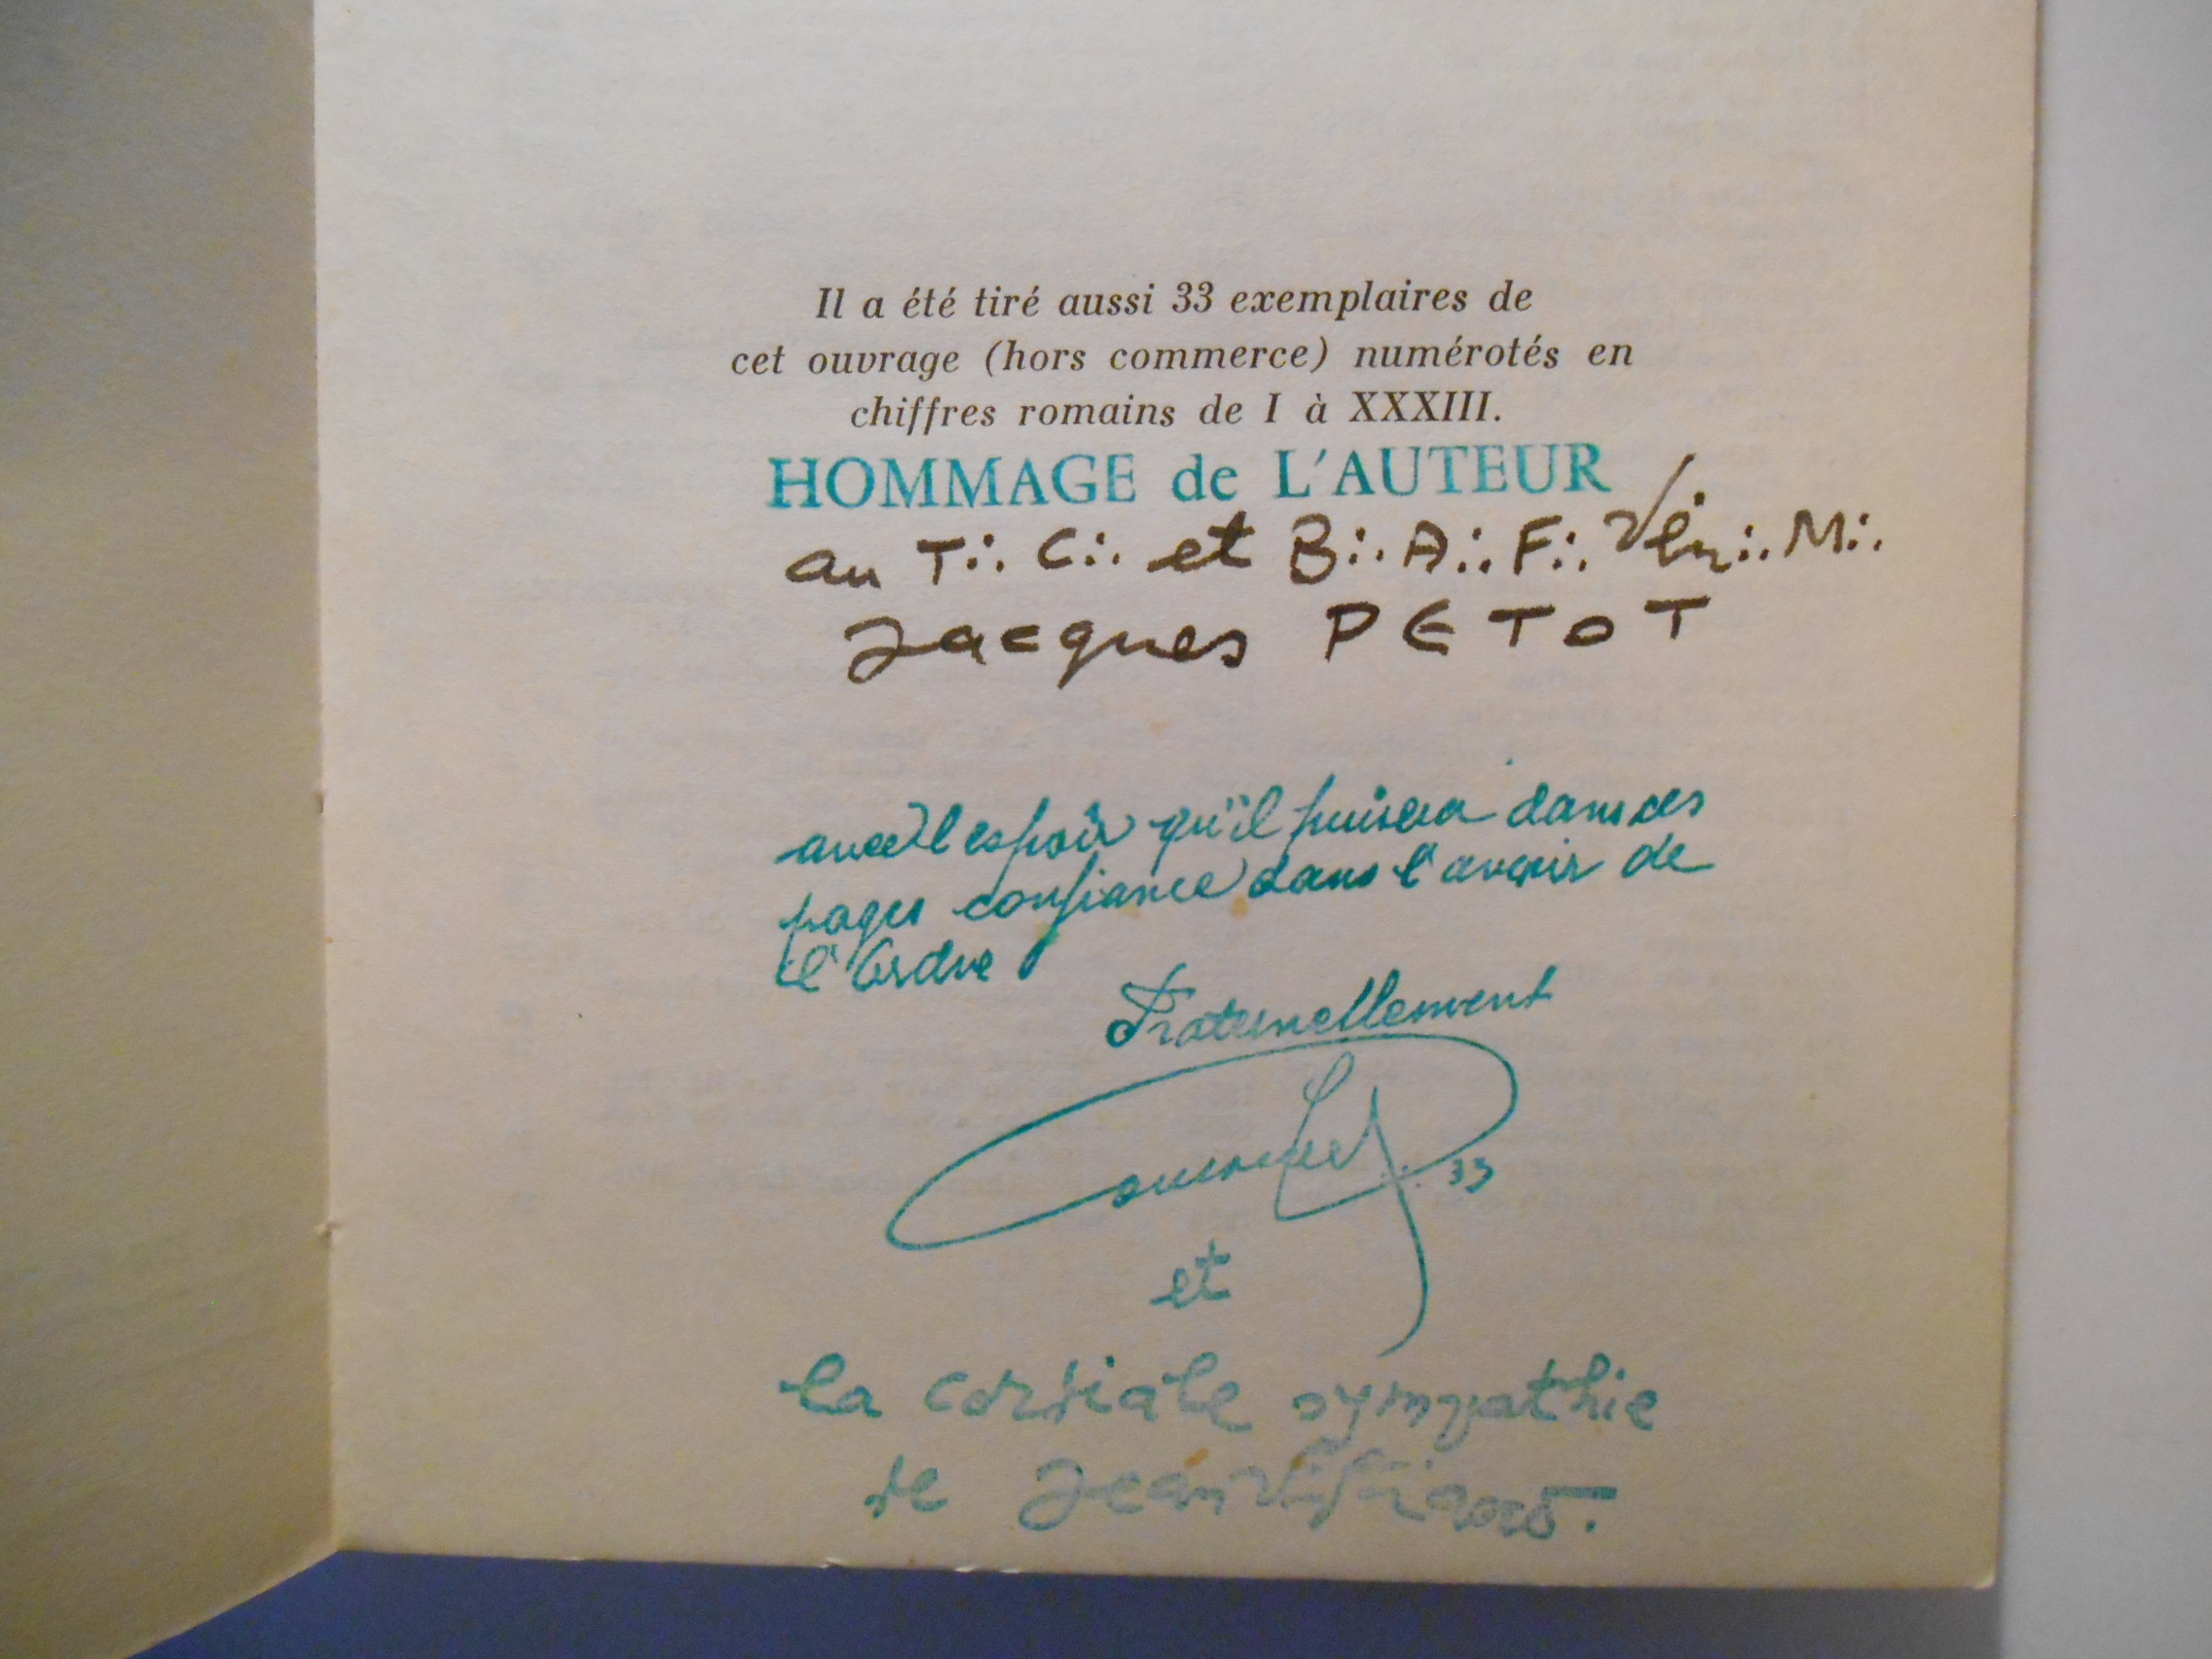 Il a été tiré aussi 33 exemplaires de
cet ouvrage (hors commerce) numérotés en
chiffres romains de I à XXXIII.
HOMMAGE de L'AUTEUR
au T∴ C∴ et B∴ A∴ F∴ Vén∴ M∴
Jacques PETOT
avec l'espoir qu'il puisera dans ces
pages confiance dans l'avenir de
l'Ordre
Fraternellement
33
et
la cordiale sympathie
de Jean